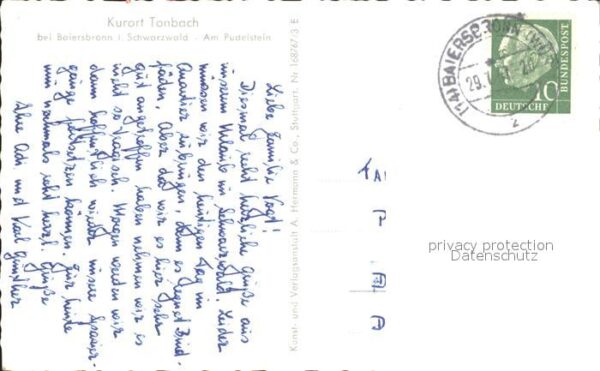 Kurort Tonbach
bei Baiersbronn i. Schwarzwald - Am Pudelstein
Liebe Familie Vogt!
Diesmal recht herzliche Grüße aus
unserem Urlaub im Schwarzwald. Leider
müssen wir den heutigen Tag im
Quartier verbringen, denn es regnet Bind-
fäden. Aber da wir es hier sehr
gut angetroffen haben nehmen wir es
nicht so tragisch. Morgen werden wir
dann hoffentlich wieder unsere Spazier-
gänge fortsetzen können. Für heute
nun nochmals recht herzl. Grüße
Ihre und Karl
Kunst- und Verlagsanstalt A. Hermann & Co., Stuttgart, Nr. 16876/3 E
(14) BAIERSBRONN
29.7.
z
10
DEUTSCHE
BUNDESPOST
privacy protection
Datenschutz